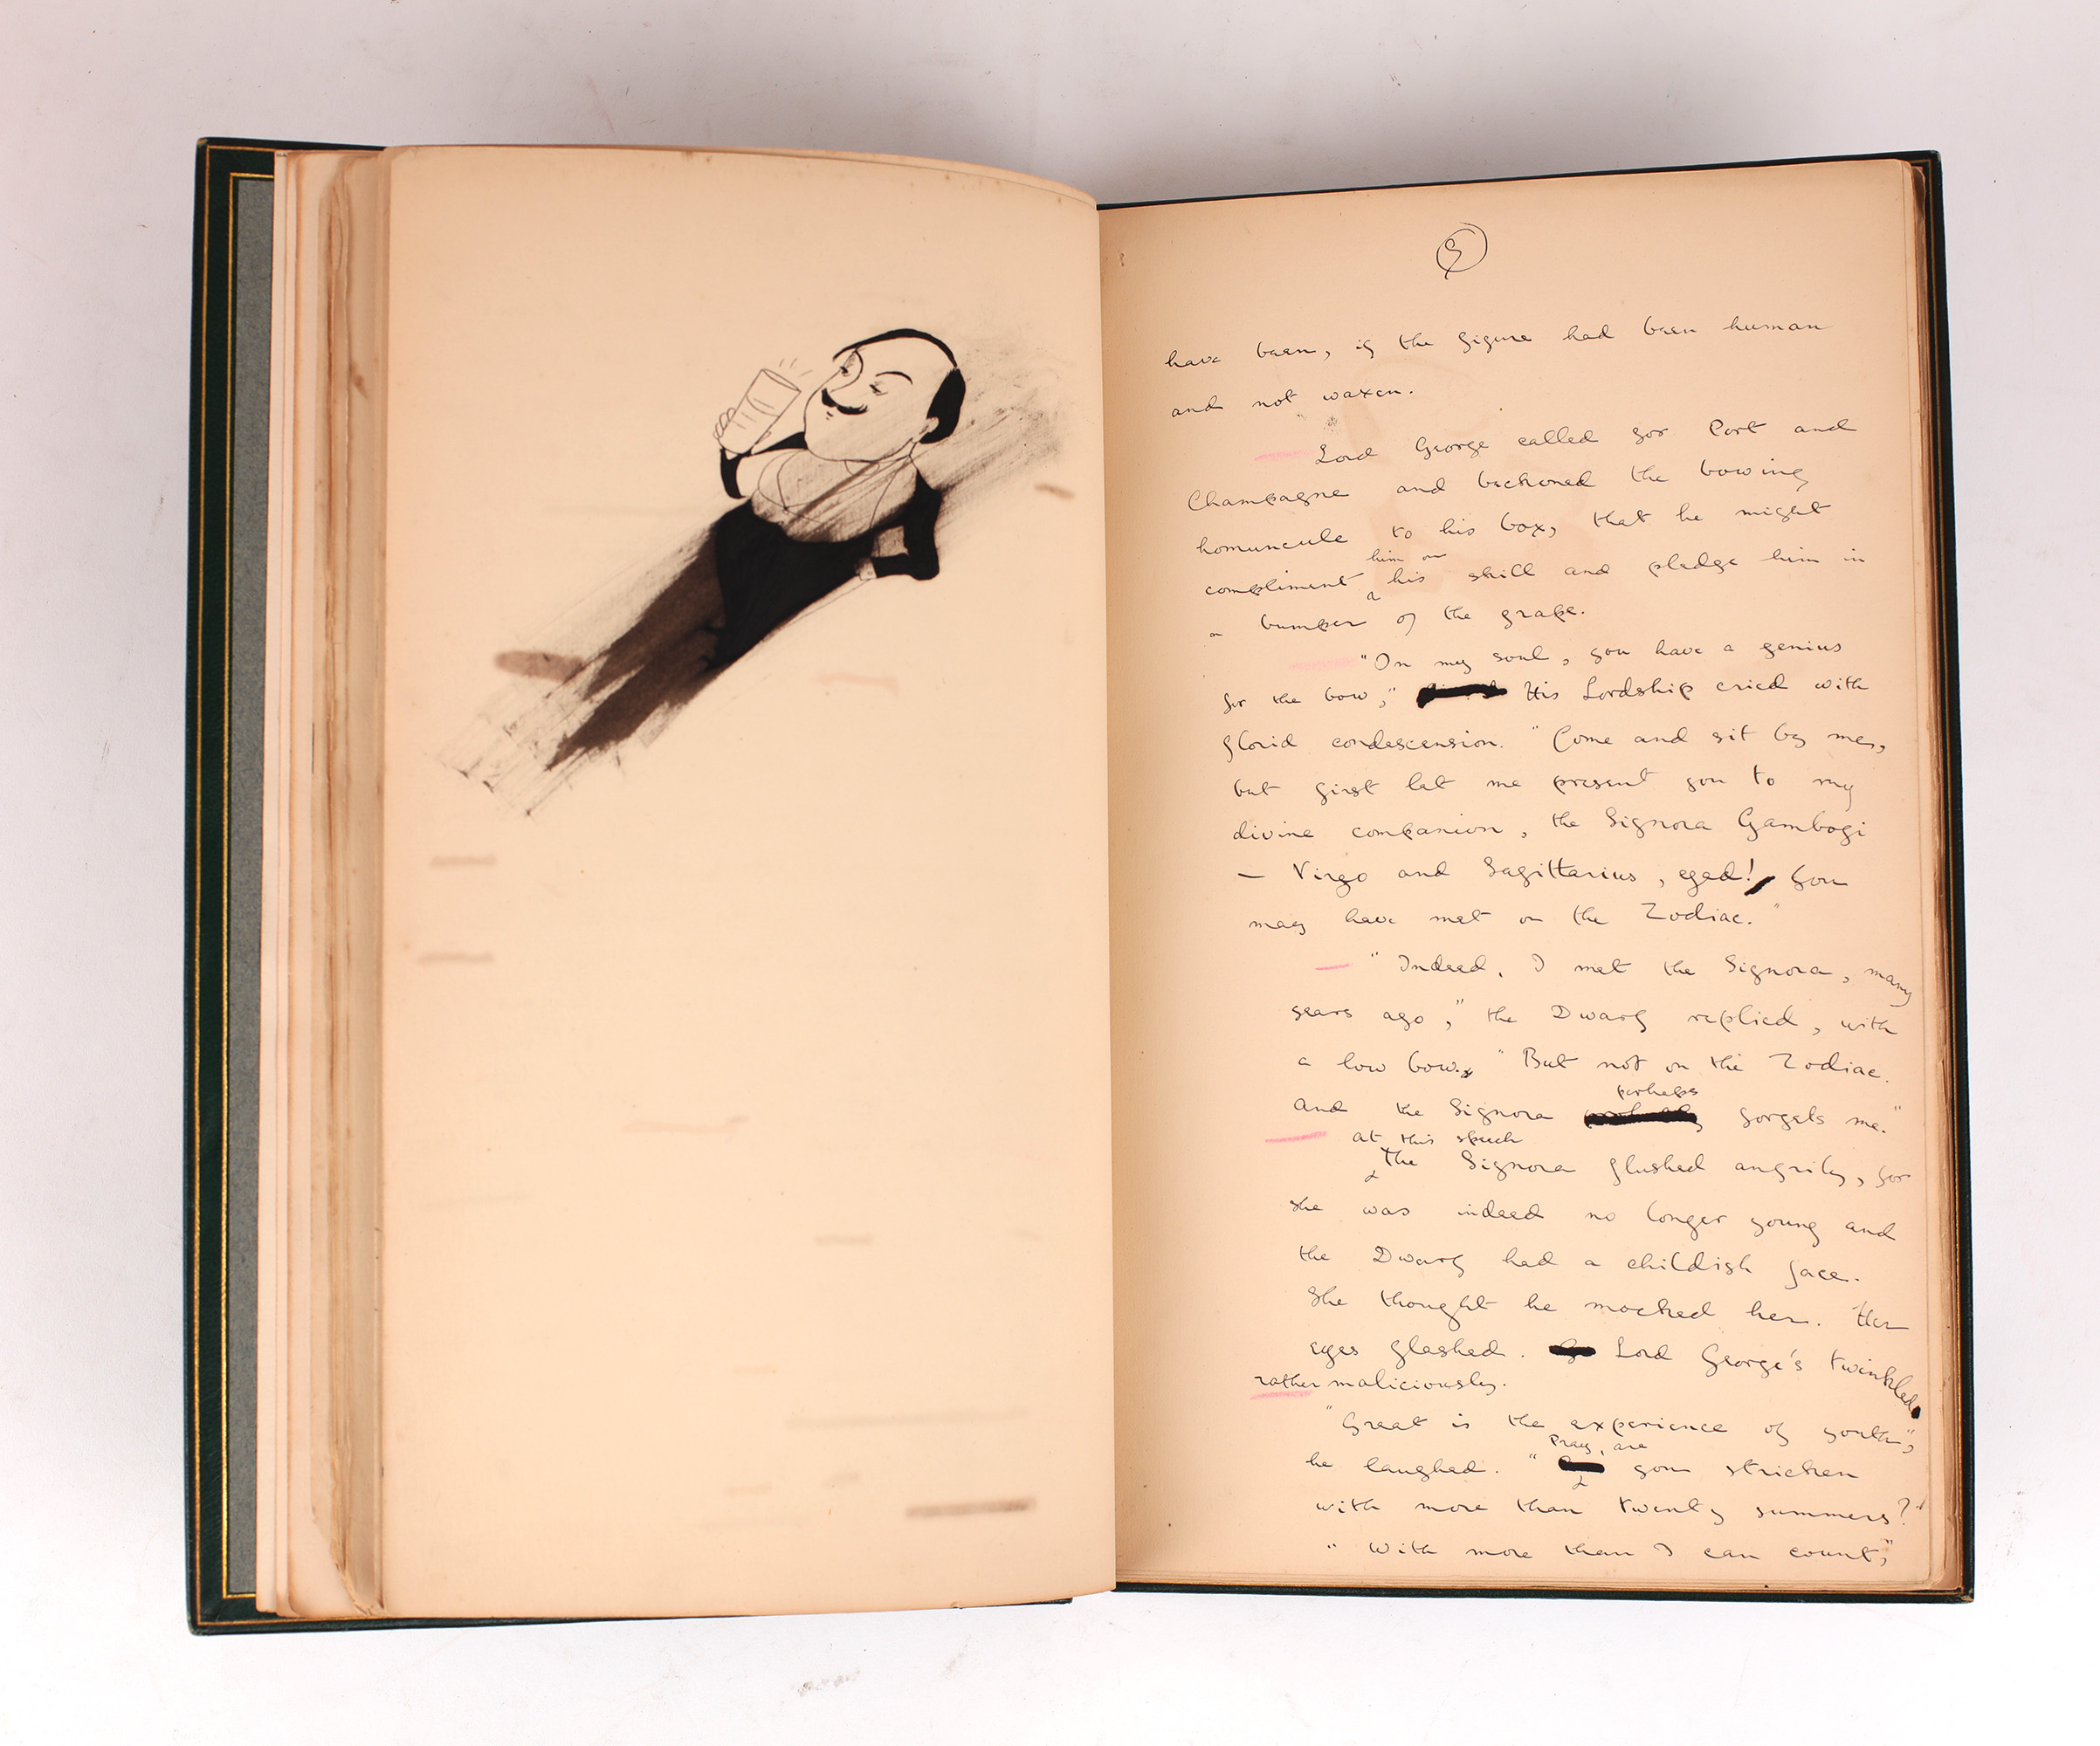 9
have been, if the figure had been human
and not waxen.
Lord George called for Port and
Champagne and beckoned the bowing
homuncule to his box, that he might
him on
compliment his skill and pledge him in
a bumper of the grape.
"On my soul, you have a genius
for the bow," His Lordship cried with
florid condescension. "Come and sit by me,
but first let me present you to my
divine companion, the Signora Gambogi
— Virgo and Sagittarius, egad! You
may have met on the Zodiac."
"Indeed, I met the Signora, many
years ago," the Dwarf replied, with
a low bow. "But not on the Zodiac.
perhaps
and the Signora forgets me."
at this speech
The Signora flushed angrily, for
she was indeed no longer young and
the Dwarf had a childish face.
She thought he mocked her. Her
eyes flashed. Lord George's twinkled
rather maliciously.
"Great is the experience of youth",
pray, are
he laughed. " you stricken
with more than twenty summers?"
"With more than I can count,"